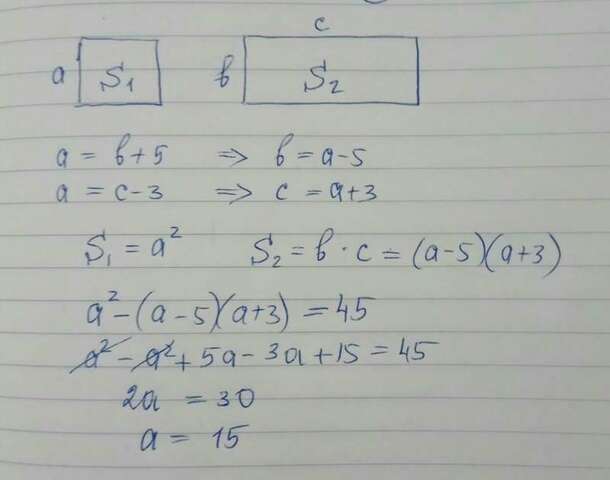 c
a S₁ b S₂
a = b + 5 => b = a - 5
a = c - 3 => c = a + 3
S₁ = a² S₂ = b · c = (a - 5)(a + 3)
a² - (a - 5)(a + 3) = 45
a² - a² + 5a - 3a + 15 = 45
2a = 30
a = 15